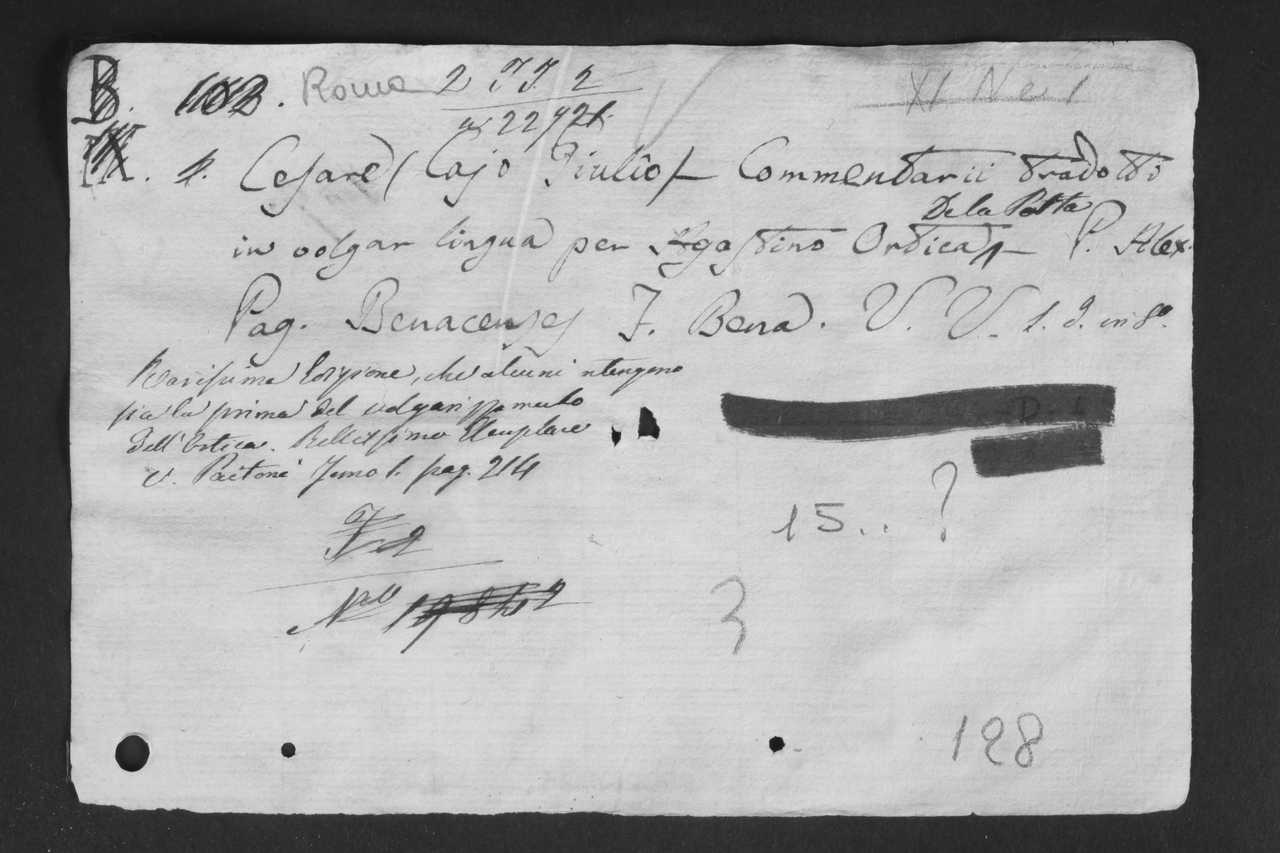 B. 102. Roma 2 J.J. 2 XI Ne 1
22721.
IX. 4. Cesare (Cajo Giulio) Commentarii tradotti
De la Porta
in volgar lingua per Agostino Ortica P. Alex.
Pag. Benacenses F. Bena. V. V. s. d. in 8º.
Rarissima Edizione, che alcuni ritengono
sia la prima del volgarizzamento
Dell'Ortica. Bellissimo Esemplare
v. Paitoni Tomo 1. pag. 214
2
15.. ?
3
128